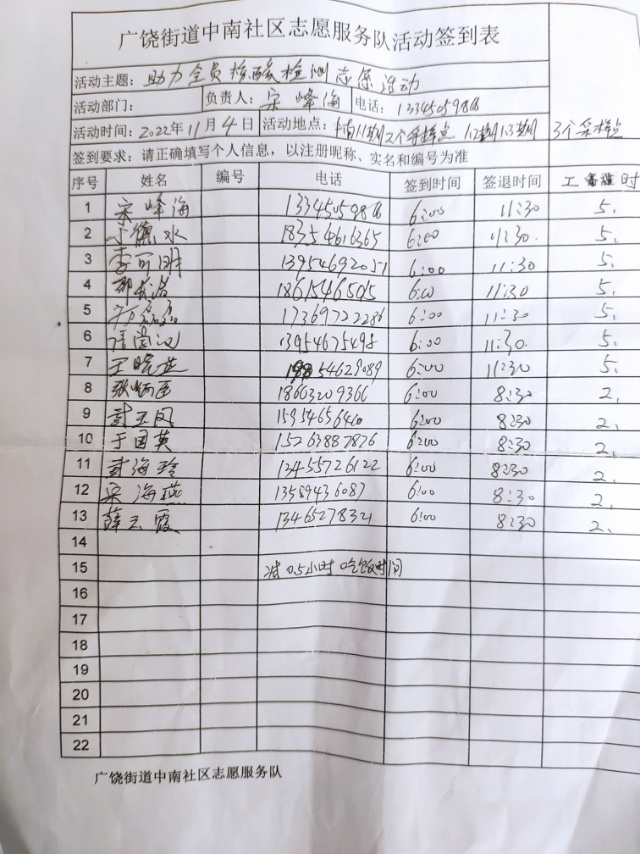 广饶街道中南社区志愿服务队活动签到表
活动主题: 助力全员核酸检测志愿活动
活动部门: 负责人: 宋峰海 电话: 13345059866
活动时间: 2022年11月4日 活动地点: 11期 2个采样点 12期 13期 3个采样点
签到要求: 请正确填写个人信息,以注册昵称、实名和编号为准
序号 姓名 编号 电话 签到时间 签退时间 时
1 宋峰海 13345059866 6:00 11:30 5.
2 水 18354616365 6:00 11:30. 5.
3 李可明 13954692051 6:00 11:30 5.
4 1861546505 6:00 11:30 5.
5 17369722286 6:00 11:30 5.
6 13954675498 6:00 11:30 5.
7 王晓 54629089 6:00 11:30 5.
8 张 18663209366 6:00 8:30 2.
9 封玉凤 15954656460 6:00 8:30 2.
10 于国英 15263887876 6:00 8:30 2.
11 封海玲 13455726122 6:00 8:30 2.
12 宋海燕 13589436087 6:00 8:30 2.
13 薛云霞 13465278321 6:00 8:30 2.
14
15 减0.5小时吃饭时间
16
17
18
19
20
21
22
广饶街道中南社区志愿服务队